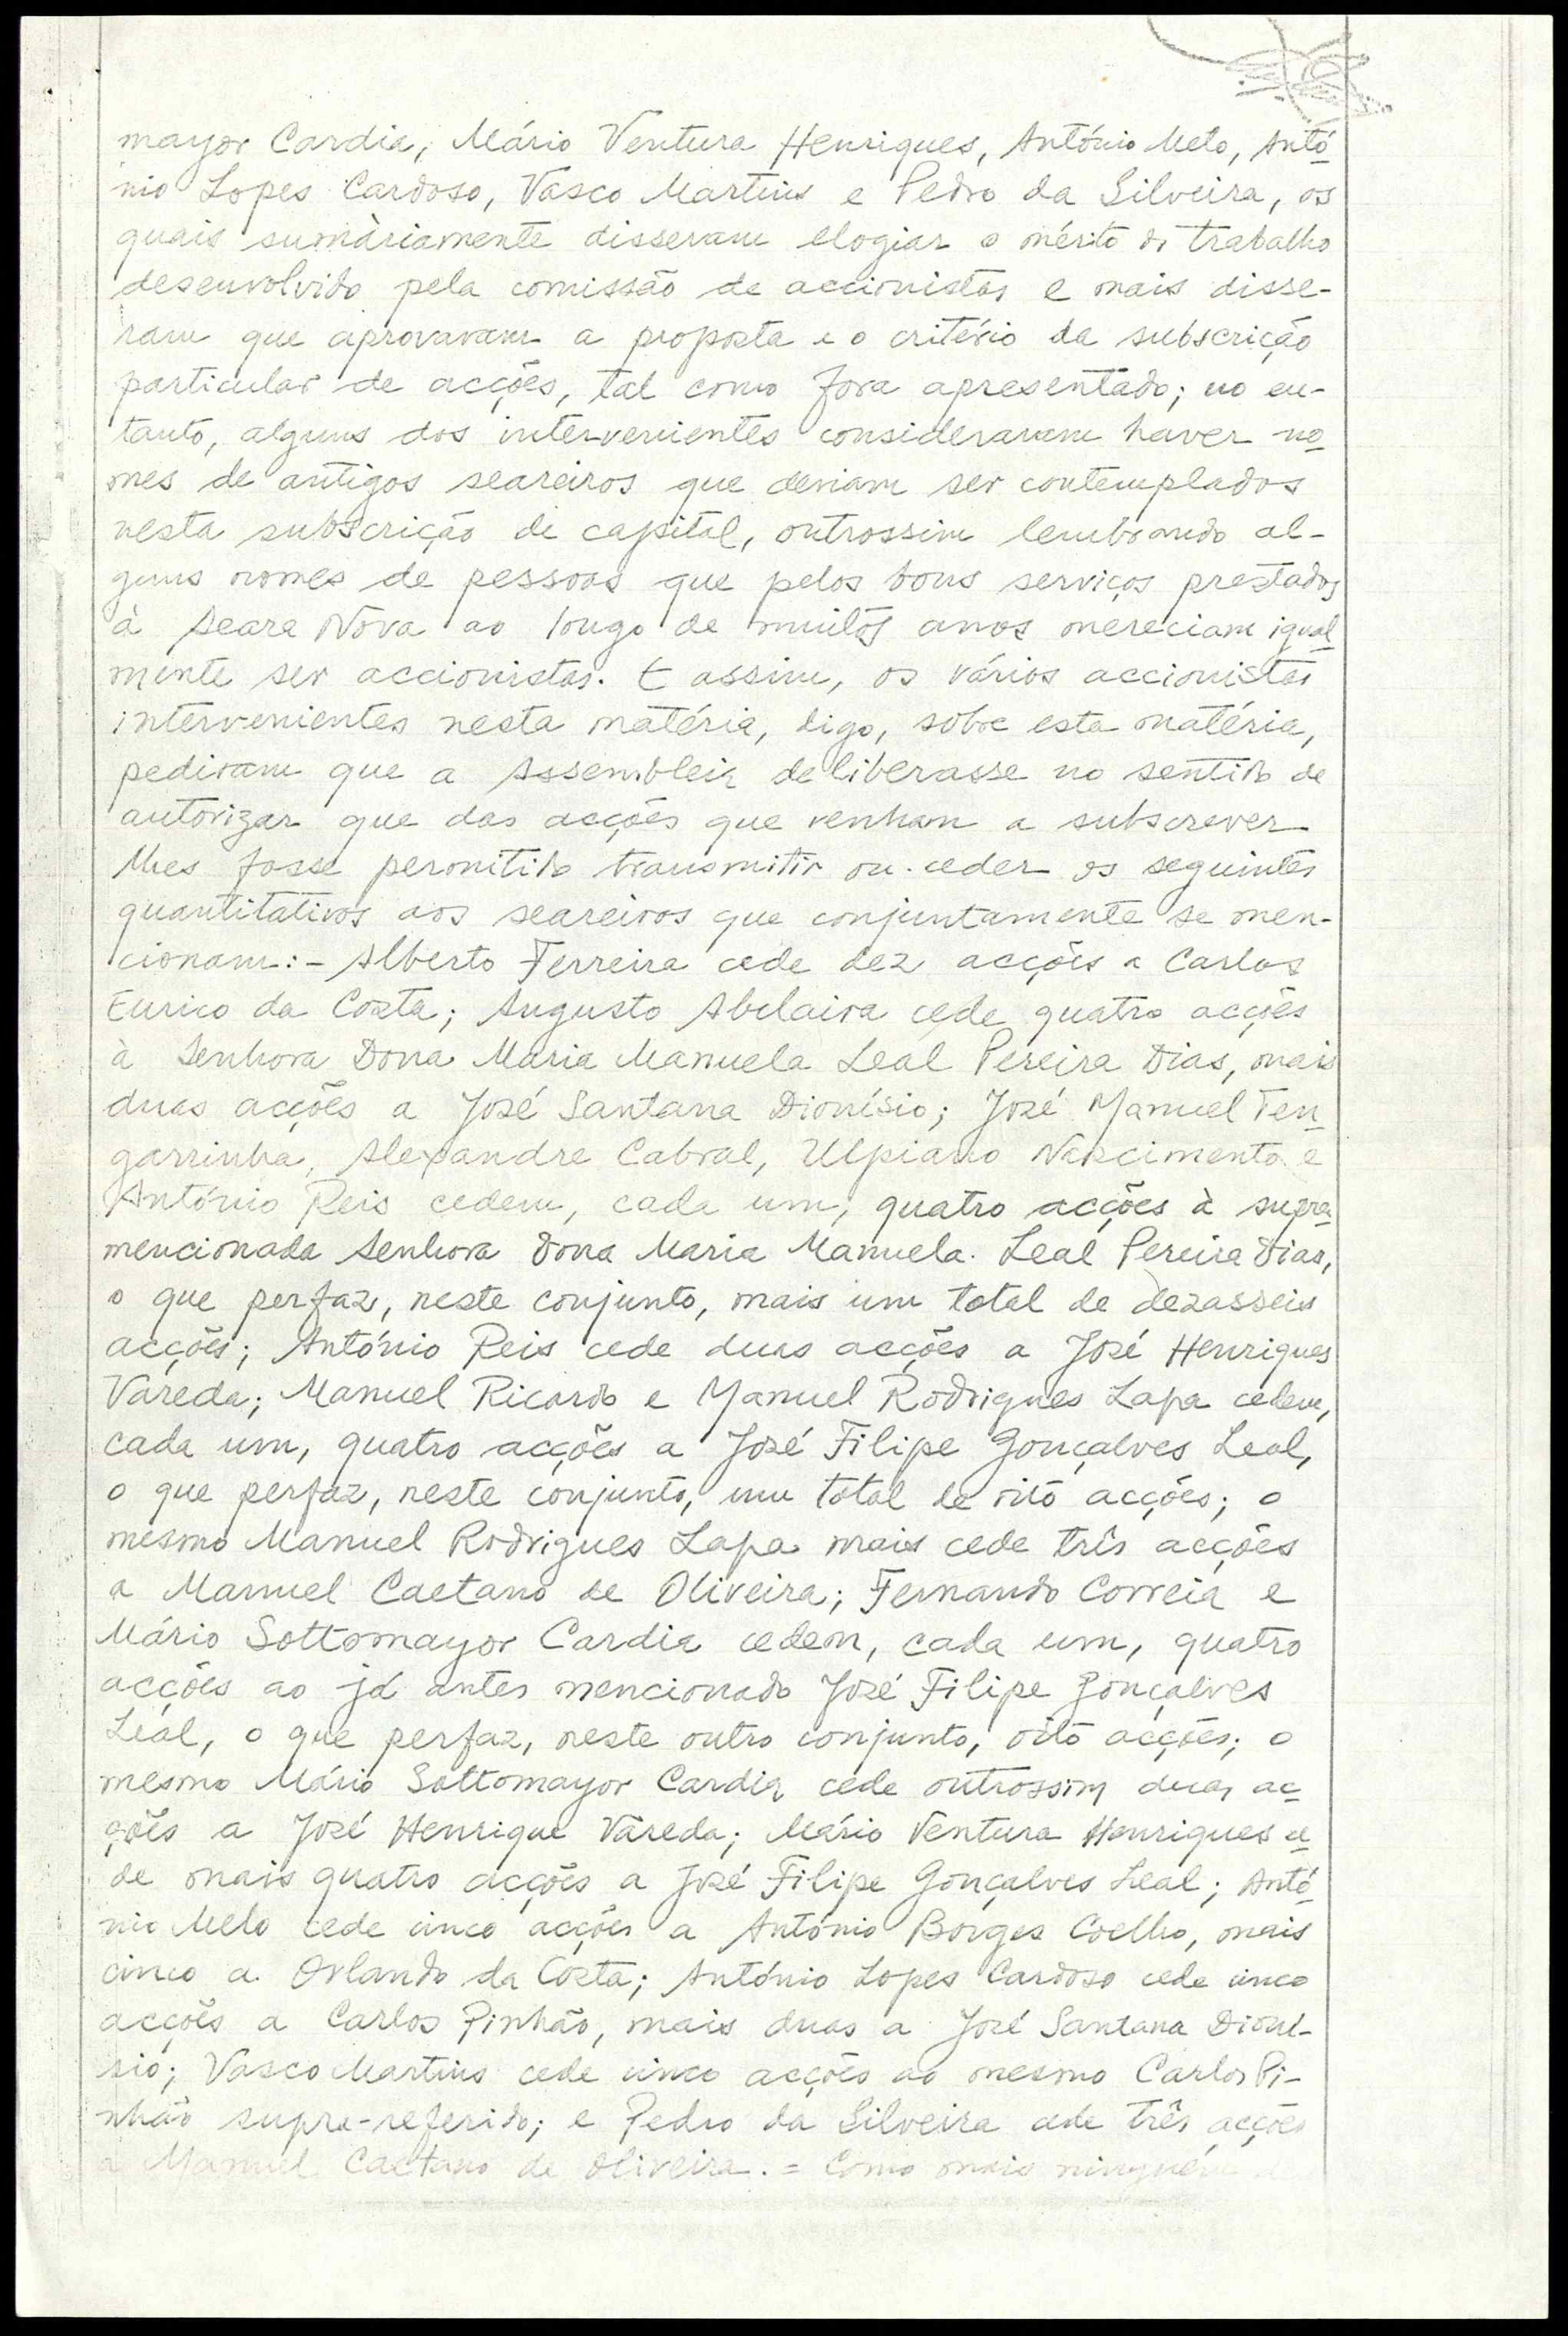 mayor Cardia, Mário Ventura Henriques, António Melo, Antó
nio Lopes Cardoso, Vasco Martins e Pedro da Silveira, os
quais sumàriamente disseram elogiar o mérito do trabalho
desenvolvido pela comissão de accionistas e mais disse-
ram que aprovavam a proposta e o critério da subscrição
particular de acções, tal como fora apresentado; no en-
tanto, alguns dos intervenientes consideraram haver no
mes de antigos seareiros que deviam ser contemplados
nesta subscrição de capital, outrossim lembrando al-
guns nomes de pessoas que pelos bons serviços prestados
à Seara Nova ao longo de muitos anos mereciam igual
mente ser accionistas. E assim, os vários accionistas
intervenientes nesta matéria, digo, sobre esta matéria,
pediram que a Assembleia deliberasse no sentido de
autorizar que das acções que venham a subscrever
lhes fosse permitido transmitir ou ceder os seguintes
quantitativos aos seareiros que conjuntamente se men-
cionam:- Alberto Ferreira cede dez acções a Carlos
Eurico da Costa; Augusto Abelaira cede quatro acções
à Senhora Dona Maria Manuela Leal Pereira Dias, mais
duas acções a José Santana Dionísio; José Manuel Ten
garrinha, Alexandre Cabral, Ulpiano Nascimento e
António Reis cedem, cada um, quatro acções à supra
mencionada Senhora Dona Maria Manuela Leal Pereira Dias,
o que perfaz, neste conjunto, mais um total de dezasseis
acções; António Reis cede duas acções a José Henriques
Vareda; Manuel Ricardo e Manuel Rodrigues Lapa cedem,
cada um, quatro acções a José Filipe Gonçalves Leal,
o que perfaz, neste conjunto, um total de oito acções; o
mesmo Manuel Rodrigues Lapa mais cede três acções
a Manuel Caetano de Oliveira; Fernando Correia e
Mário Sottomayor Cardia cedem, cada um, quatro
acções ao já antes mencionado José Filipe Gonçalves
Leal, o que perfaz, neste outro conjunto, oito acções; o
mesmo Mário Sottomayor Cardia cede outrossim duas ac
ções a José Henrique Vareda; Mário Ventura Henriques ce
de mais quatro acções a José Filipe Gonçalves Leal; Antó
nio Melo cede cinco acções a António Borges Coelho, mais
cinco a Orlando da Costa; António Lopes Cardoso cede cinco
acções a Carlos Pinhão, mais duas a José Santana Dioní-
sio; Vasco Martins cede cinco acções ao mesmo Carlos Pi-
nhão supra-referido; e Pedro da Silveira cede três acções
a Manuel Caetano de Oliveira. = Como mais ninguém